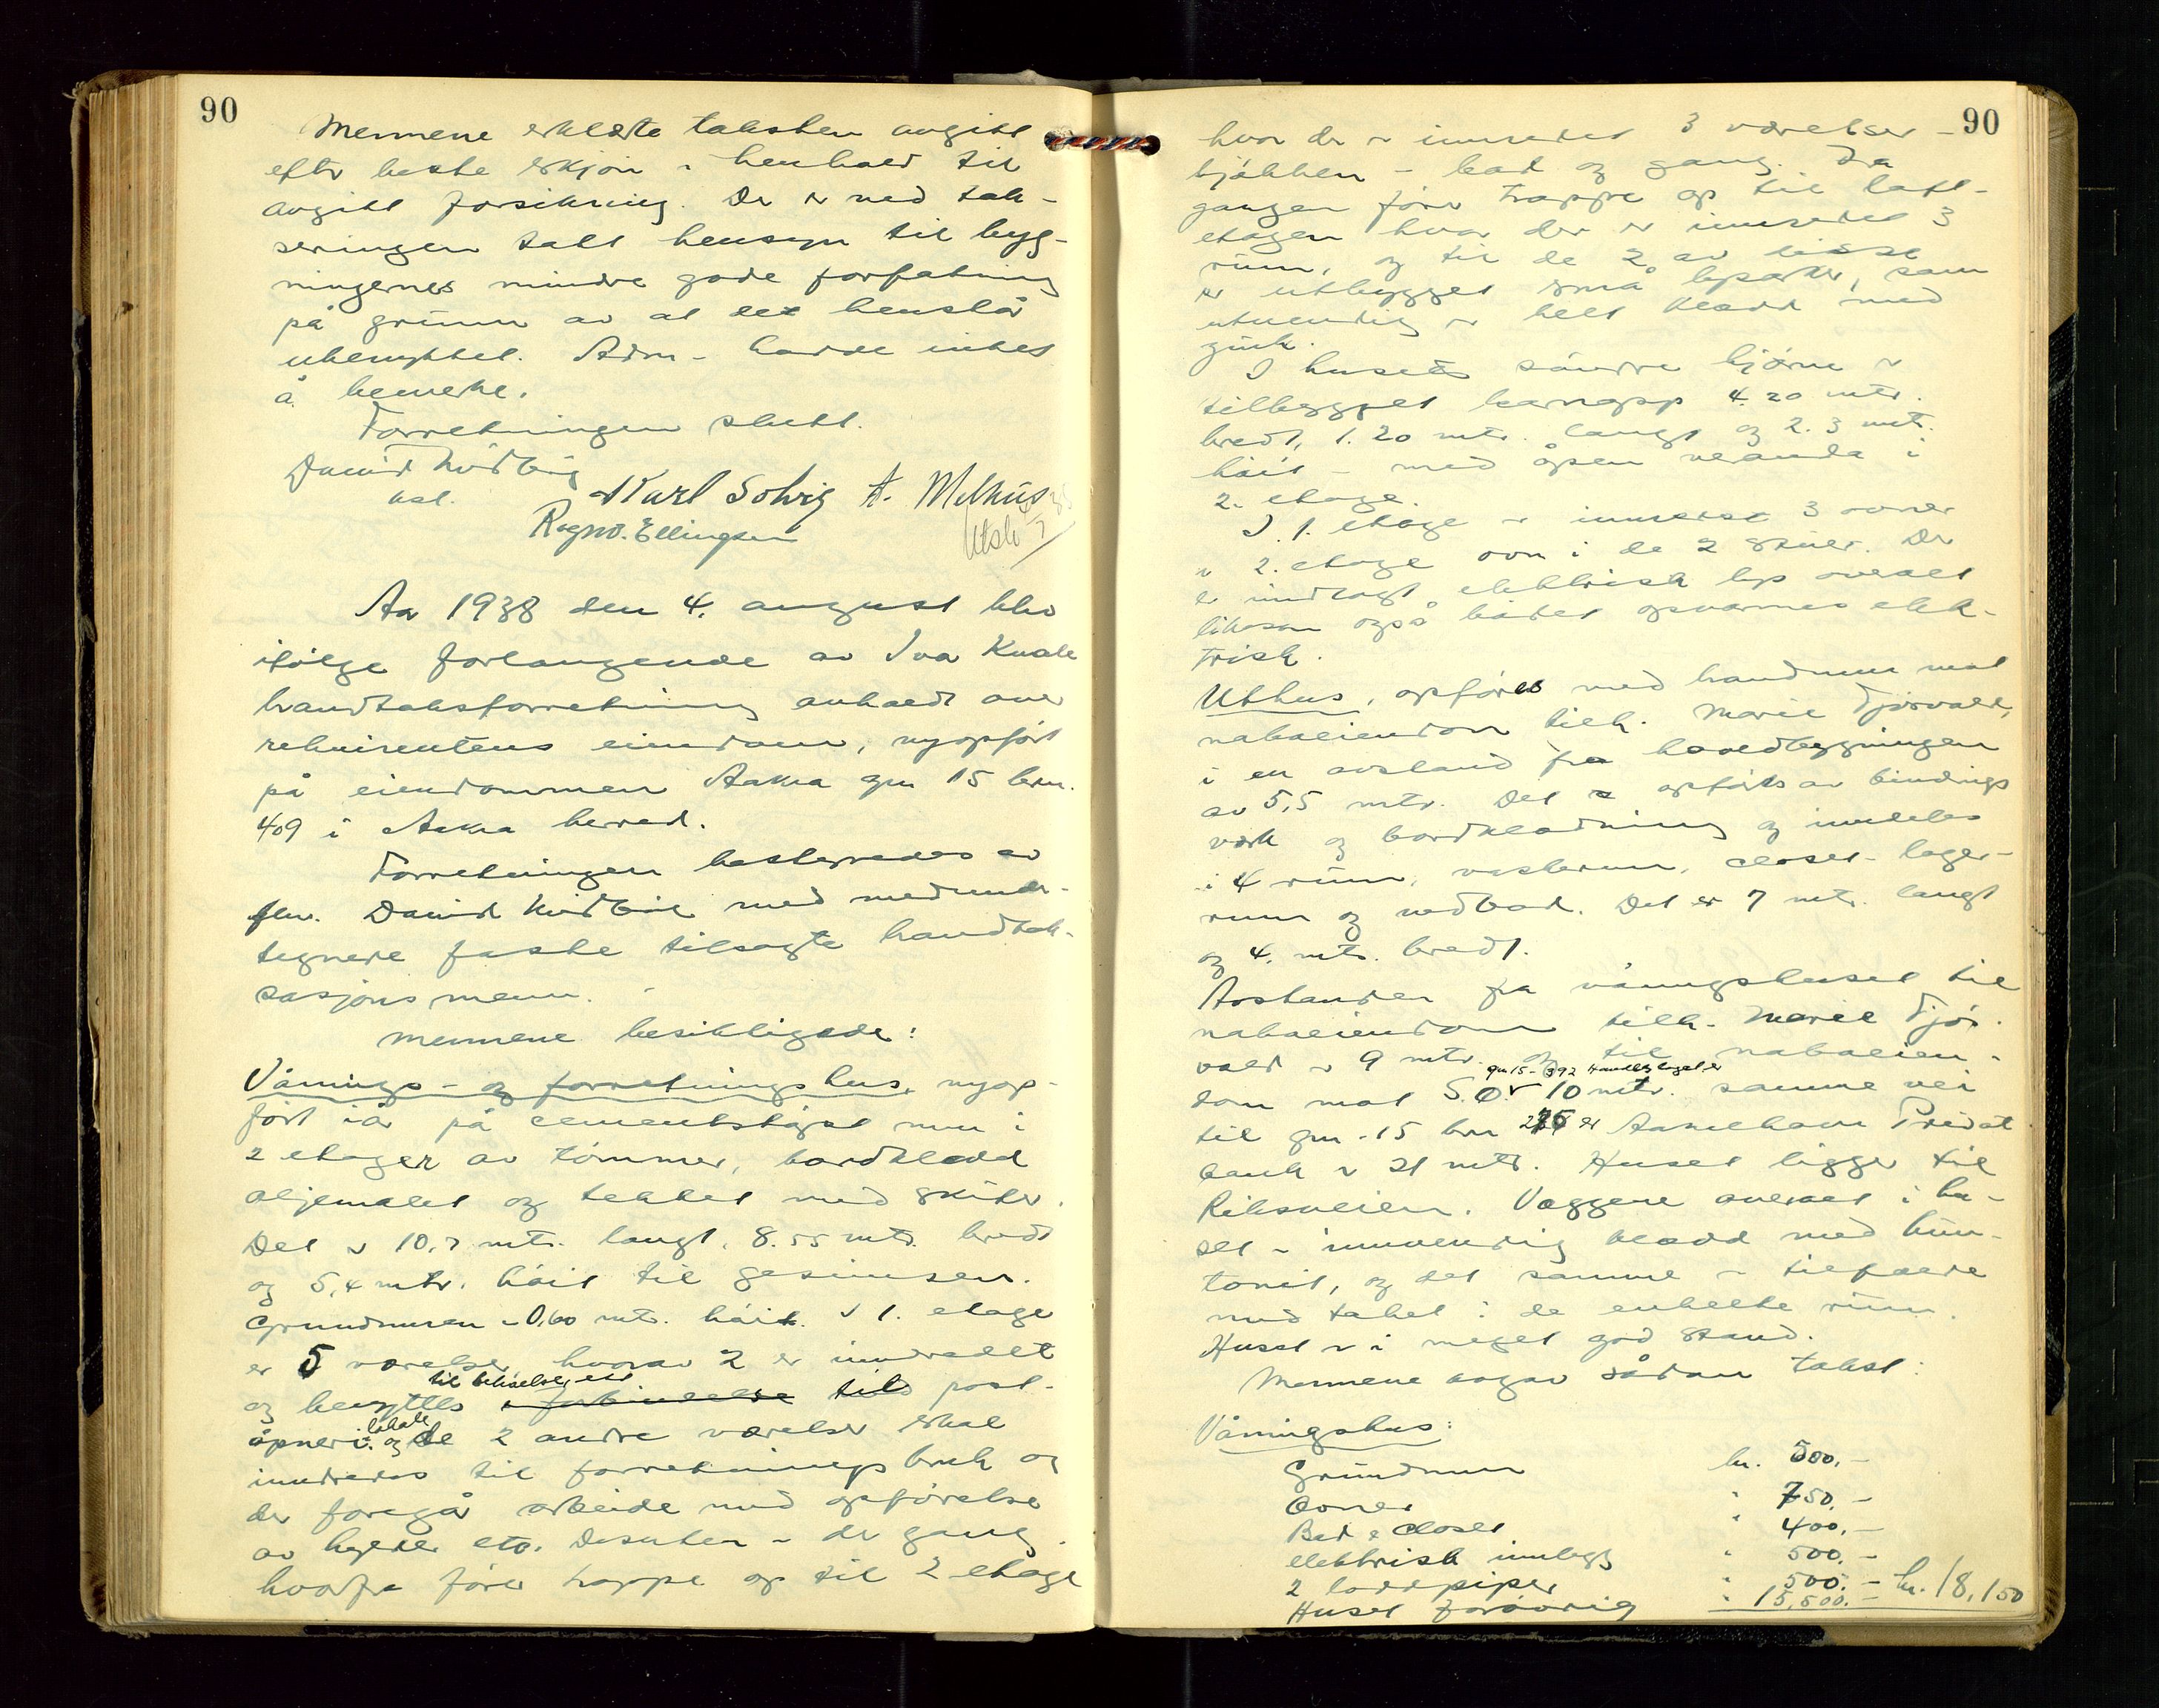 90
Mennene erklærte taksten avgitt
efter beste skjøn i henhold til
avgitt forsikring. Der er ved tak-
seringen tatt hensyn til byg-
ningernes mindre gode forfatning
på grunn av at det henstår
ubenyttet. Adm- havde intet
å bemerke.
Forretningen slutt.
David Hvidbing
Karl Solvig A. Melhus
Ragnv. Ellingsen
Utsk
Aar 1938 den 4. august blev
ifølge forlangende av Iva Kvale
branntakstforretning avholdt over
rekvirentens eiendom, nyopført
på eiendommen Aakra gnr 15 brn.
409 i Aakra herred.
Forretningen bestyredes av
flm. David Hvidbing med medunder-
tegnede faste tilsagte brandtak-
sasjons menn. -
Mennene besiktigede:
Vånings- og forretningshus, nyop-
ført iår på cementstøpt mur i
2 etager av tømmer, bordklædd
oljemalet og tekket med skifer.
Det er 10,7 mtr. langt, 8.55 mtr. bredt
og 5,4 mtr. høit til gesimsen.
Grundmuren er 0,60 mtr. høit. I 1. etage
er 5 værelser hvorav 2 er inndredet
til beboelse, ett
og benyttes i forbindelse til post-
lokale
åpneri. og de 2 andre værelser skal
inndredes til forretningsbruk og
der foregår arbeide med opførelse
av hylder etc. Desuten er der gang
hvorfra fører trappe op til 2 etage
90
hvor der er innredet 3 værelser -
kjøkken - bad og gang. Fra
gangen fører trappe op til loft-
etagen hvor der er innredet 3
rum, og til de 2 av disse
er utbygget små oparker, som
utvendig er helt klædd med
zink.
I husets søndre hjørne er
tilbygget karnapp 4.20 mtr.
bredt, 1.20 mtr. langt og 2.3 mtr.
høit - med åpen veranda i
2. etage.
I 1. etage er innredet 3 ovner
i 2. etage ovn i de 2 stuer. Der
er innlagt elektrisk lys overalt
likesom også badet opvarmes elek-
trisk.
Uthus, opføres med brandmur mot
naboeiendom tilh. Marie Fjørvald,
i en avstand fra hovedbygningen
av 5,5 mtr. Det er opført av bindings
verk og bordklædning og inndeles
i 4 rum, vaskerum, closet- lager-
rum og vedbod. Det er 7 mtr. langt
og 4. mtr. bredt.
Avstanden fra våningshuset til
naboeiendom tilh. Marie Fjør-
vald er 9 mtr. og til naboeien-
gnr 15 - 392 Handelslaget er
dom mot S.Ø. er 10 mtr. samme vei
til gnr. 15 brn er Aakrehavn Privat
bank er 21 mtr. Huset ligger til
Riksveien. Væggene overalt i hu-
set er innvendig klædd med hun-
tonit, og det samme er tilfælde
med taket i de enkelte rum.
Huset er i meget god stand.
Mennene avgav sådan takst:
Våningshus:
Grundmur kr. 500.-
Ovner " 750.-
Bad & closet " 400.-
elektrisk innlegg " 500.-
2 loddpiper " 500.-
Huset forøvrig " 15,500.- kr. 18,150